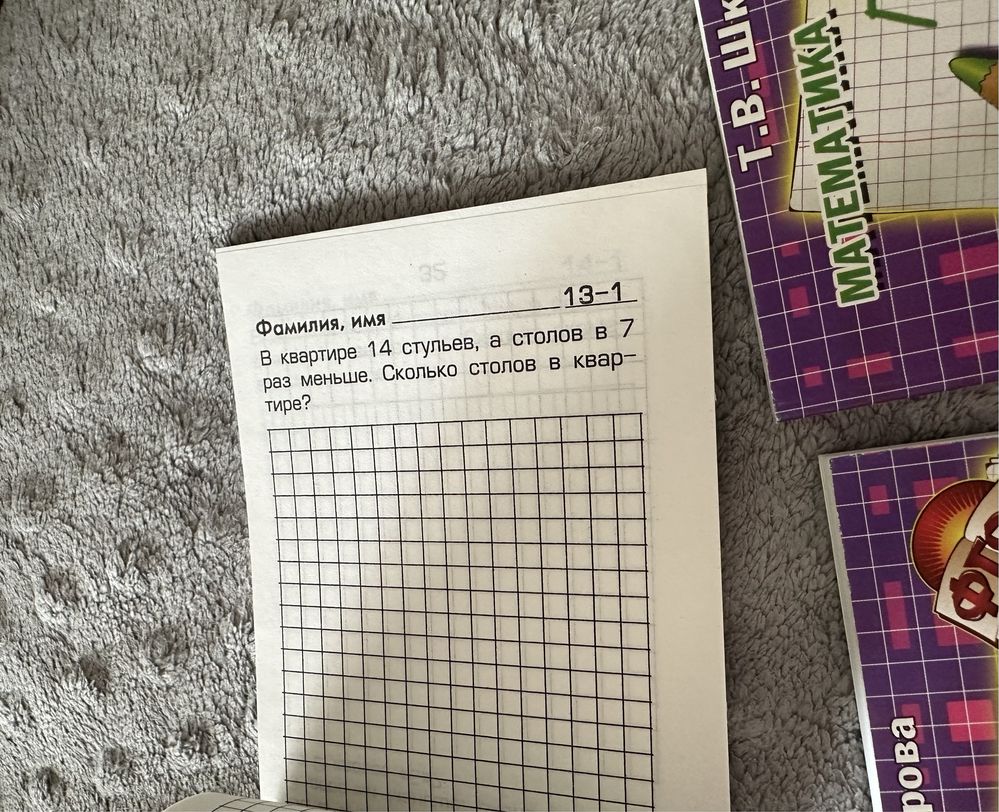 13-1
Фамилия, имя
В квартире 14 стульев, а столов в 7
раз меньше. Сколько столов в квар-
тире?
35
14-1
Т.В. Шк
МАТЕМАТИКА
рова